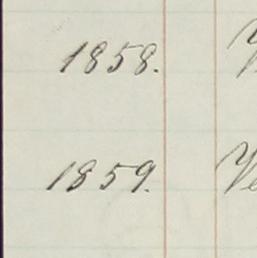 1858.
1859.